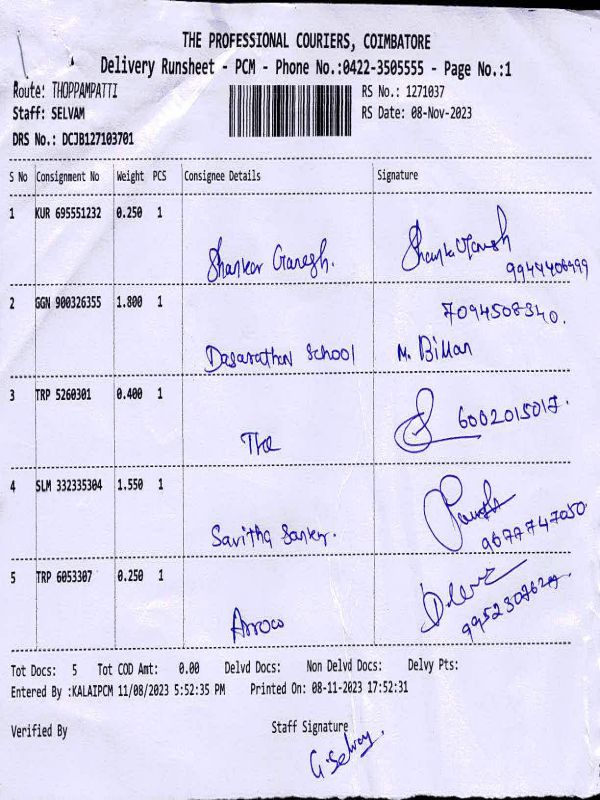 THE PROFESSIONAL COURIERS, COIMBATORE
Delivery Runsheet - PCM - Phone No.:0422-3505555 - Page No.:1
Route: THOPPAMPATTI RS No.: 1271037
Staff: SELVAM RS Date: 08-Nov-2023
DRS No.: DCJB127103701
S No Consignment No Weight PCS Consignee Details Signature
1 KUR 695551232 0.250 1
Shankar Ganesh.
2 GGN 900326355 1.800 1 7094508340.
Dasarathan School M.
3 TRP 5260301 0.400 1 6002015017.
4 SLM 332335304 1.550 1
Savitha Sanker. 9677747050
5 TRP 6053307 0.250 1
Arrow
Tot Docs: 5 Tot COD Amt: 0.00 Delvd Docs: Non Delvd Docs: Delvy Pts:
Entered By :KALAIPCM 11/08/2023 5:52:35 PM Printed On: 08-11-2023 17:52:31
Verified By Staff Signature
G. Selvam.